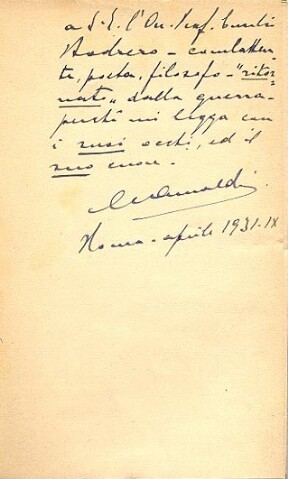 a S. E. l'On. Prof. Emilio
Bodrero - combatten-
te, poeta, filosofo - "ritor-
nato" dalla guerra -
perchè mi legga con
i suoi occhi, ed il
suo cuore -
Roma - aprile 1931 - IX